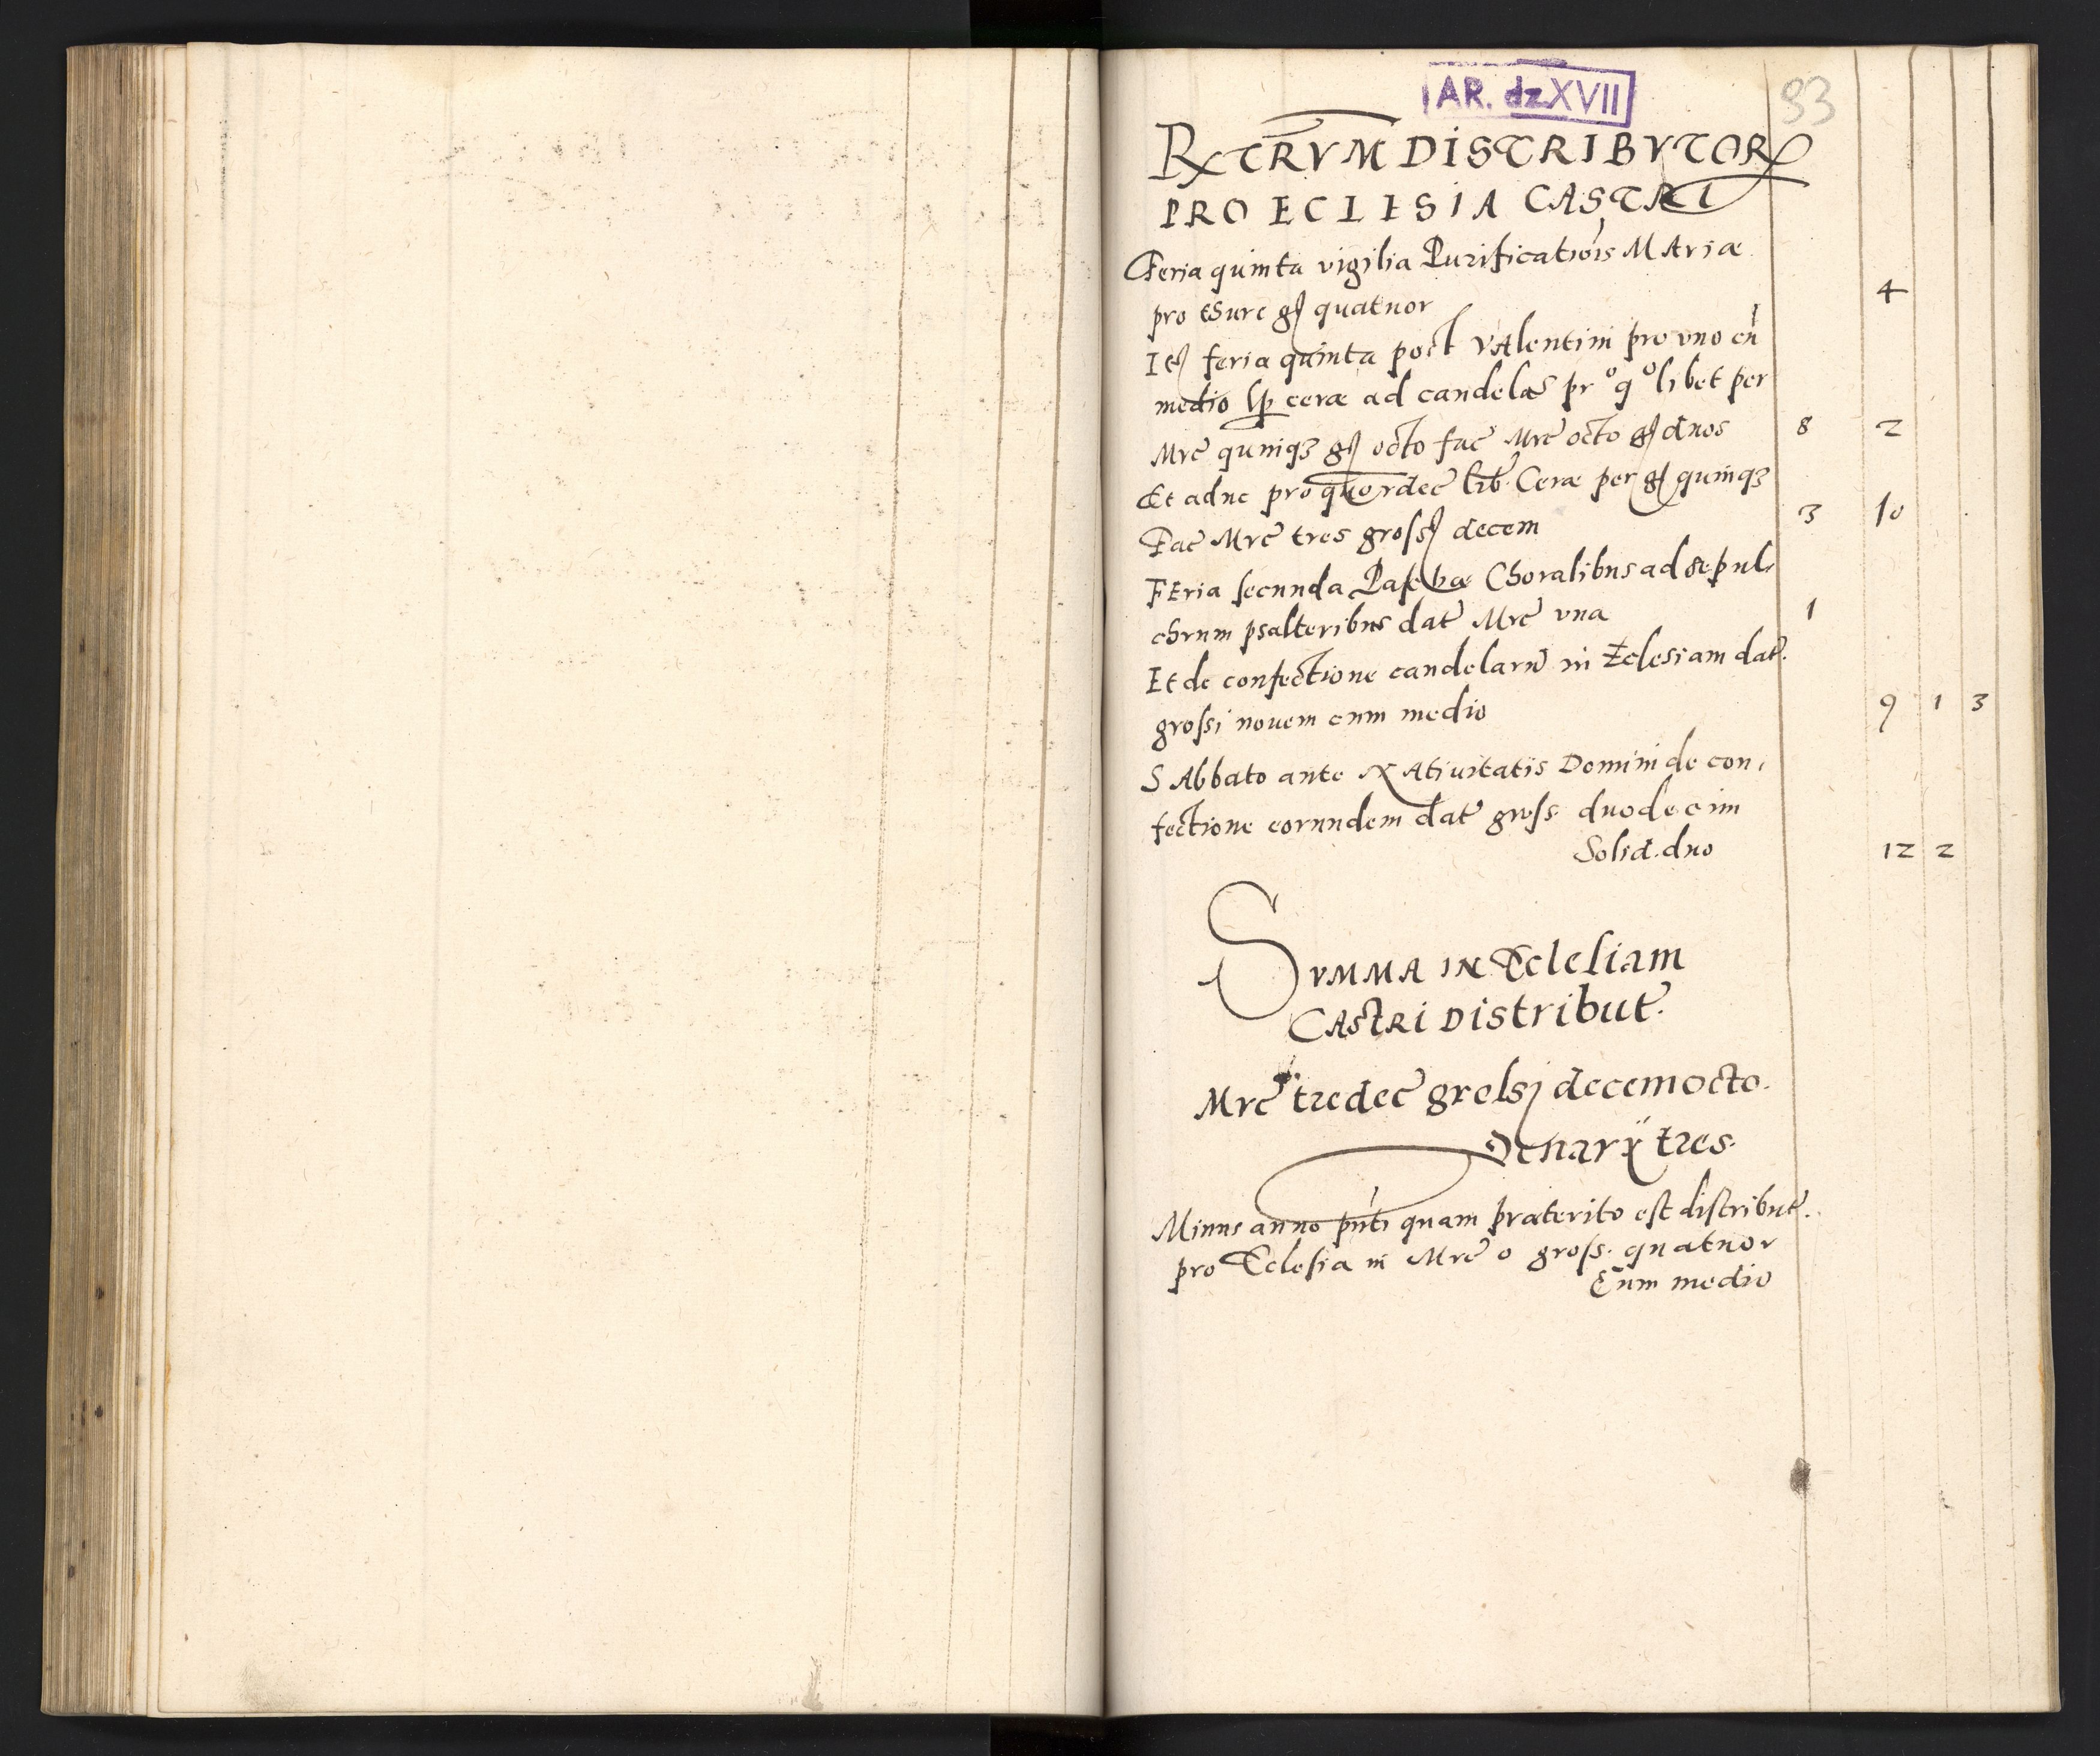 AR. dz XVII
93
R℞ TRVM DISTRIBVTOR
PRO ECLESIA CASTRI
Feria quinta vigilia Purificatiõis MAriæ
pro esure gſ quatuor 4
Itẽ feria quinta post VAlentini pro vno cũ
medio ceræ ad candelas pro q°libet per
Mrc̃ quinqꝫ gſ octo fac̃ Mrc̃ octo gſ duos 8 2
Et aduc pro quordec̃ lib̃. Ceræ per gſ quinqꝫ
Fac̃ Mrc̃ tres grossſ decem 3 10
FEria secunda Paschæ Choralibus ad sepul,
chrum psalteribus dat̃ Mrc̃ vna 1
Et de confectione candelarũ in Eclesiam dat̃.
grossi nouem cum medio 9 1 3
SAbbato ante NAtiuitatis Domini de con,
fectione eorundem dat̃ gross. duodecim
Solid. duo 12 2
SVMMA IN Eclesiam
CAStRi Distribut̃.
Mrc̃ tredec̃ grossj decemocto.
Denarÿ tres.
Minus anno pñti quam præterito est distribut̃.
pro Eclesia in Mrc̃ o gross. quatuor
Cum medio